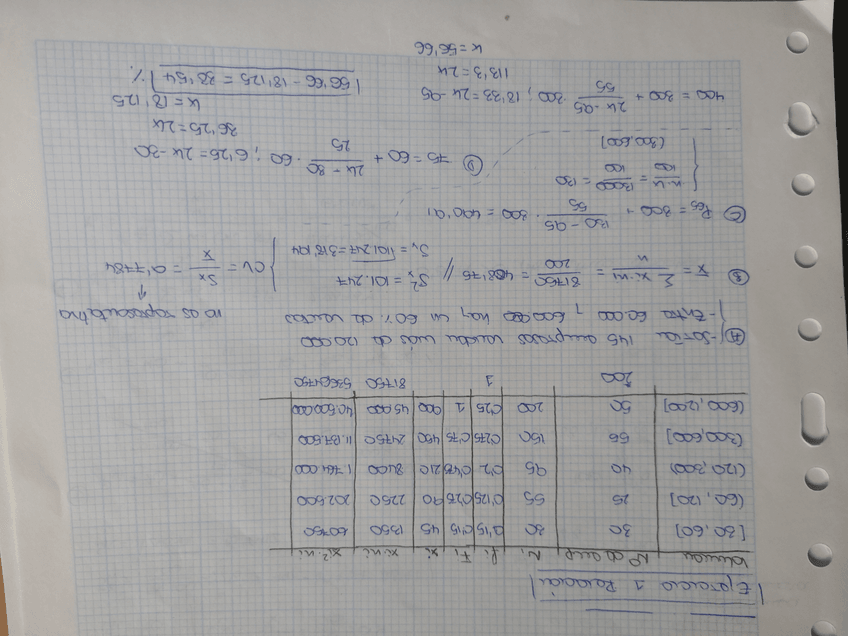 Ejercicio 1 Relación
Volumen Nº de emp Ni fi Fi xi xi·ni xi²·ni
[30,60] 30 30 0'15 0'15 45 1350 60750
(60,120] 25 55 0'125 0'275 90 2250 202.500
(120,300] 40 95 0'2 0'475 210 8400 1.764.000
(300,600] 55 150 0'275 0'75 450 24750 11.137.500
(600,1200] 50 200 0'25 1 900 45.000 40.500.000
200 1 81750 53.664.750
A) - Serían 145 empresas venden más de 120.000
- Entre 60.000 y 600.000 hay un 60% de ventas
B) x̄ = Σ xi·ni / n = 81750 / 200 = 408'75 // S²x = 101.247
Sx = √101.247 = 318'194
CV = Sx / x̄ = 0'7784 → no es representativa
C) P65 = 300 + 130-95 / 55 · 300 = 490'91
n·k / 100 = 13000 / 100 = 130
(300,600]
D) 75 = 60 + 2k-30 / 25 · 60; 6'25 = 2k-30
36'25 = 2k
k = 18'125
400 = 300 + 2k-95 / 55 · 300; 18'33 = 2k-95
113'3 = 2k
k = 56'66
56'66 - 18'125 = 38'54 %